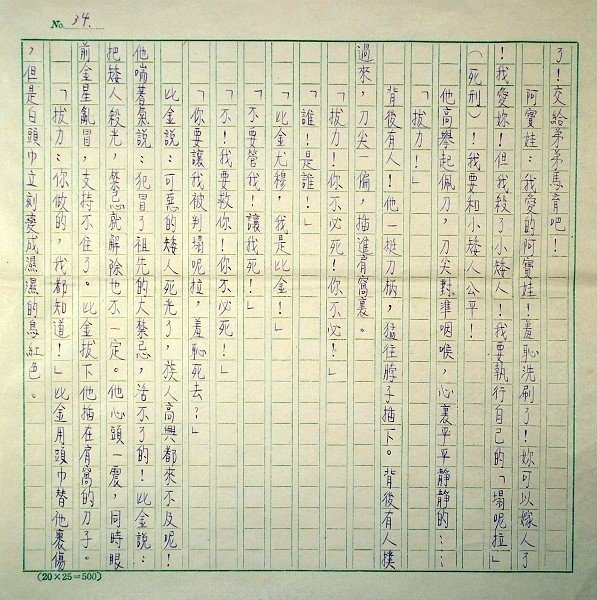 No. 34.
了！交給弟弟馬育吧！
阿寶娃：我愛的阿寶娃！羞恥洗刷了！妳可以嫁人了
！我愛妳！但我殺了小矮人！我要執行自己的「塌呢拉」
（死刑）！我要和小矮人公平！
他高舉起佩刀，刀尖對準咽喉，心裏平平靜靜的……
「拔力！」
背後有人！他一挺刀柄，猛往脖子插下。背後有人撲
過來，刀尖一偏，插進肩窩裏。
「拔力！你不必死！你不必！」
「誰！是誰！」
「比金尤穆，我是比金！」
「不要管我！讓我死！」
「不！我要救你！你不必死！」
「你要讓我被判塌呢拉，羞恥死去？」
比金說：可惡的矮人死光了，族人高興都來不及呢！
他喘著氣說：犯冒了祖先的大禁忌，活不了的！比金說：
把矮人殺光，禁忌就解除也不一定。他心頭一震，同時眼
前金星亂冒，支持不住了。比金拔下他插在肩窩的刀子。
「拔力：你做的，我都知道！」比金用頭巾替他裹傷
，但是白頭巾立刻變成濕濕的鳥紅色。
(20×25=500)